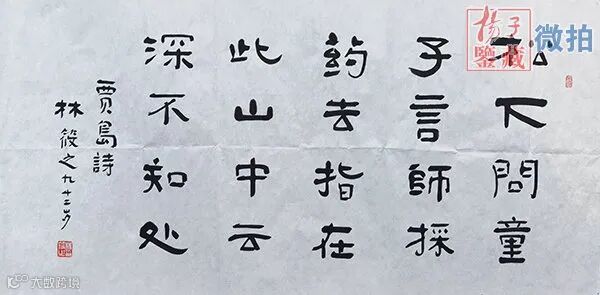 松下問童
子言師採
药去指在
此山中云
深不知处
賈島詩
林筱之九十二岁
楊子
鑒藏
微拍
大数跨境